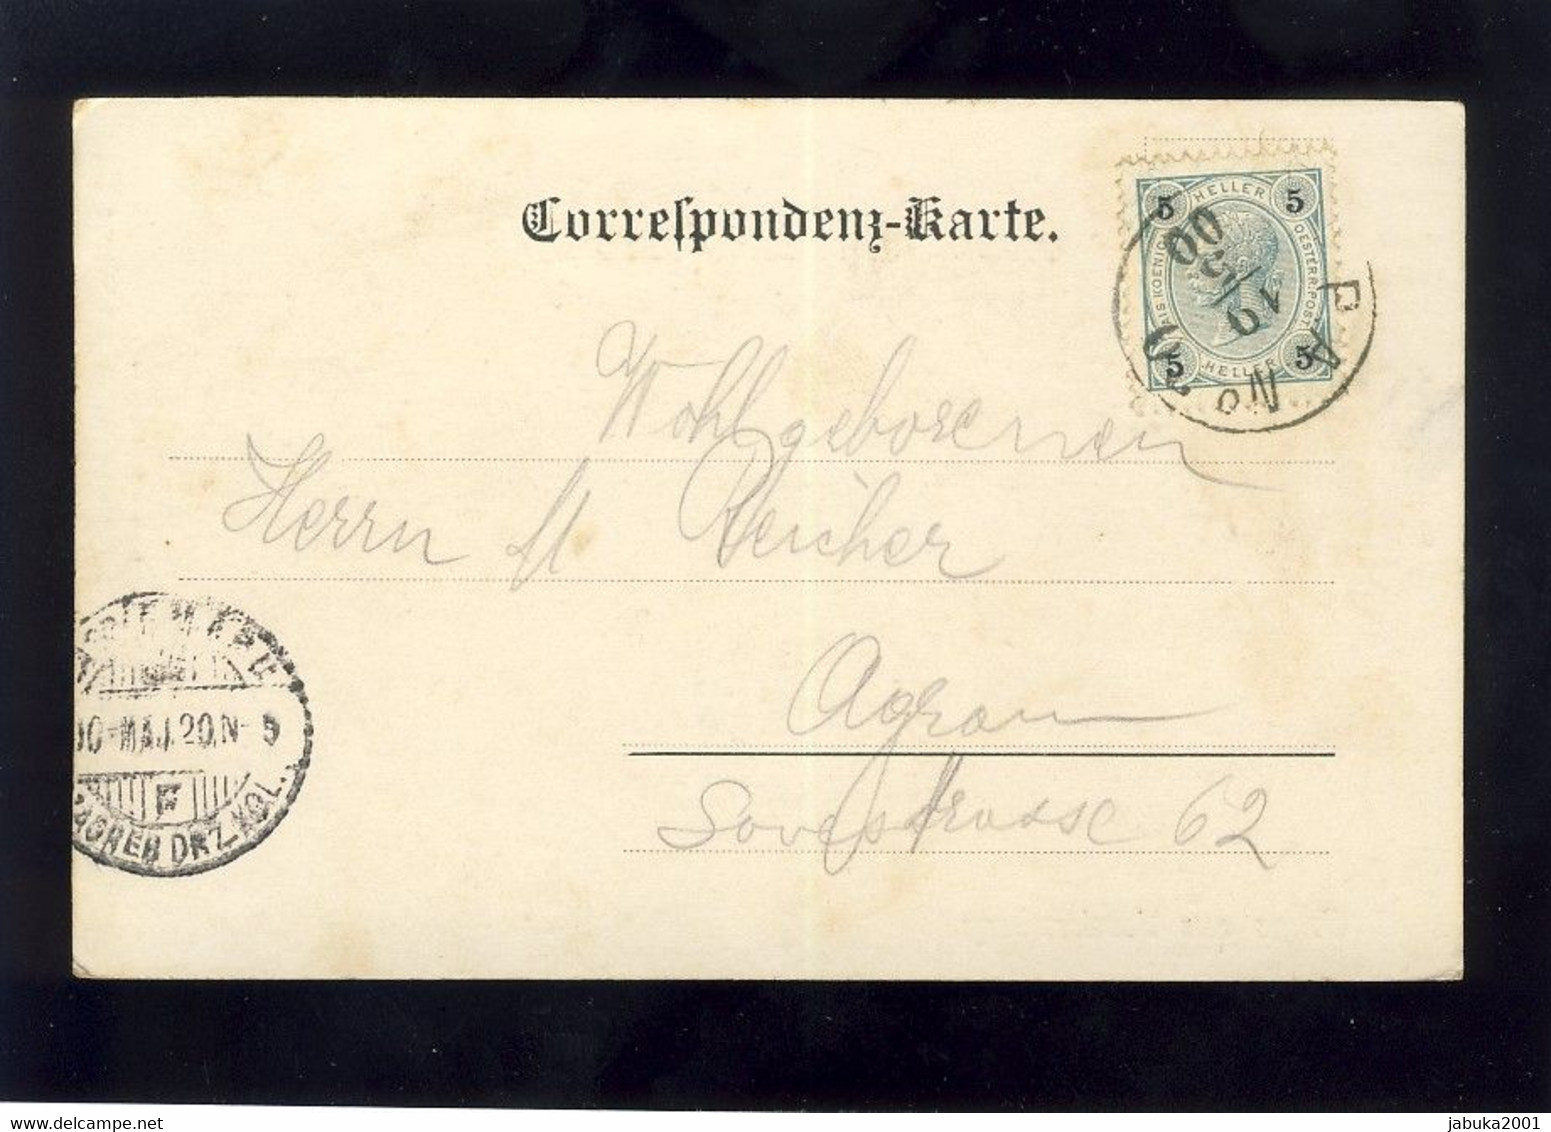 Correspondenz-Karte.
5 HELLER 5
KAIS. KOENIGL. OESTERR. POST
5 HELLER 5
19/5 00
Wohlgeborenen
Herrn M Reicher
Agram
Savestrasse 62
00-MAJ.20.N-5
F
ZAGREB DRZ. KOL.
www.delcampe.net
jabuka2001